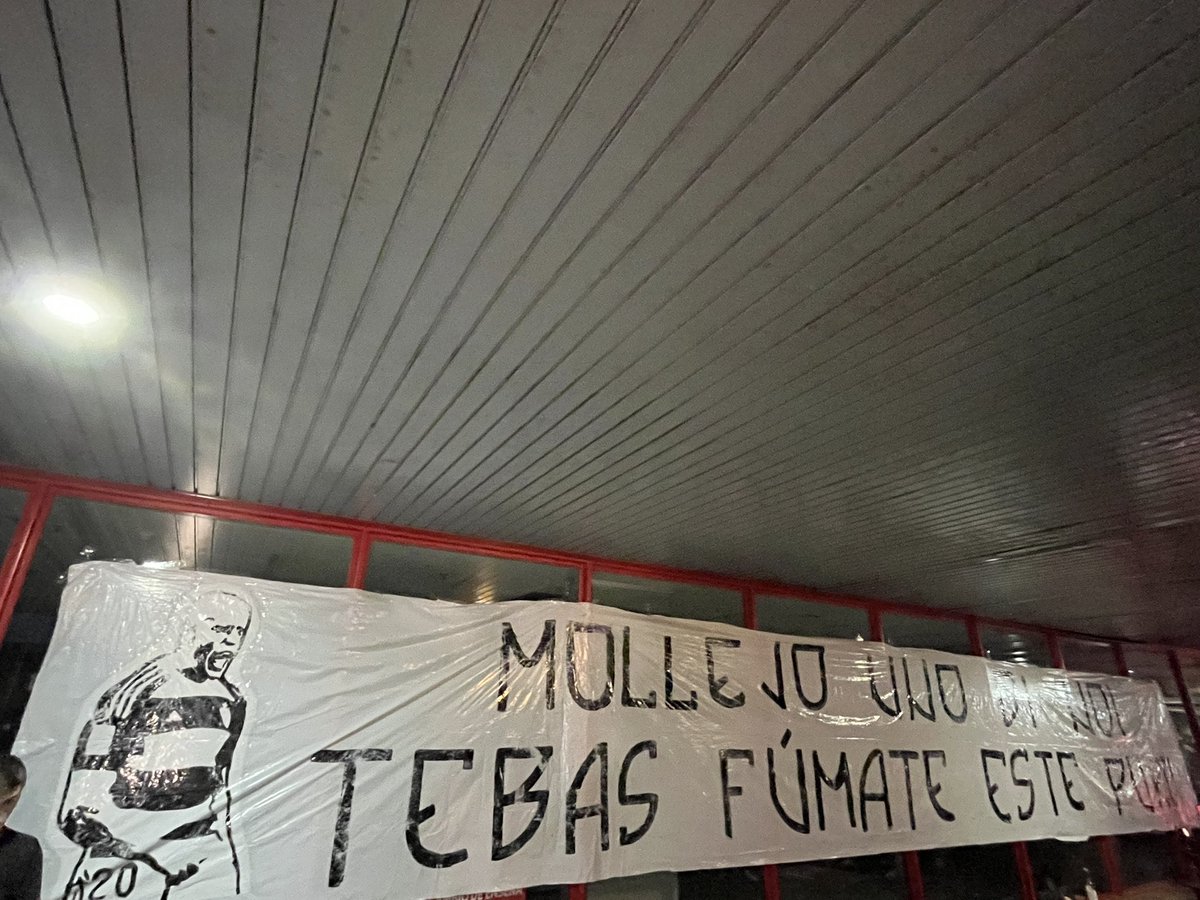 MOLLEJO UNO DI NOI
TEBAS FÚMATE ESTE
20